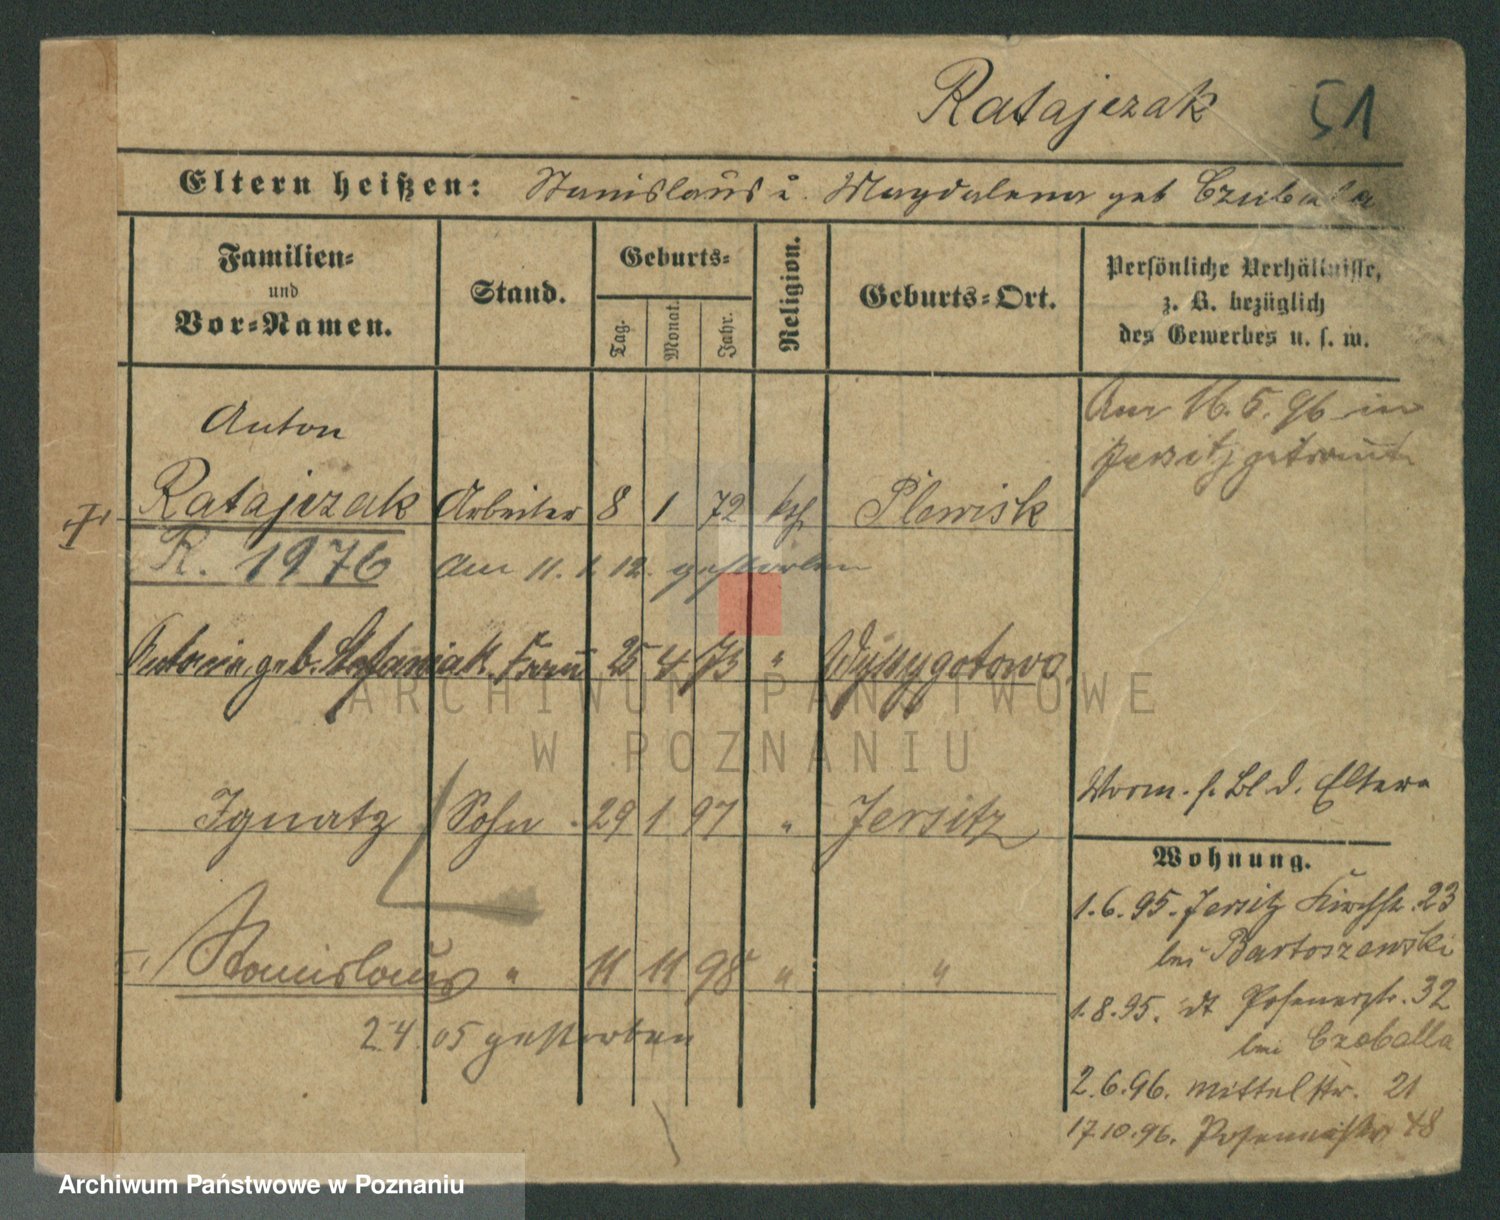 Ratajczak 51
Eltern heißen: Stanislaus u. Magdalena geb Czubala
Familien=
und
Vor=Namen.
Stand.
Geburts=
Tag. Monat. Jahr.
Religion.
Geburts=Ort.
Persönliche Verhältnisse,
z. B. bezüglich
des Gewerbes u. s. w.
Am 16. 5. 96 in
Jersitz getraut
Anton
Ratajczak Arbeiter 8 1 72 kth Plewisk
R. 1976 am 11. 1. 12. gestorben
Antonie geb. Stefaniak Frau 25 4 73 " Wysogotowo
Ignatz Sohn 29 1 97 " Jersitz
Stanislaus " 11 11 98 " "
2 4 05 gestorben
Vorm. s. Bl. d. Eltern
Wohnung.
1.6.95. Jersitz Kirchstr. 23
bei Bartoszewski
1.8.95. dt Posenerstr. 32
bei Czaballa
2.6.96. Mittelstr. 21
17.10.96. Posenerstr 48
ARCHIWUM PAŃSTWOWE
W POZNANIU
Archiwum Państwowe w Poznaniu